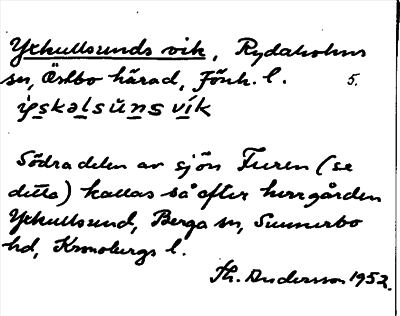 Ykullsunds vik, Rydaholms
sn, Östbo härad, Jönk. l. 5.
Södra delen av sjön Furen (se
detta) kallas så efter herrgården
Ykullsund, Berga sn, Sunnerbo
hd, Kronobergs l.
Th. Andersson 1952.